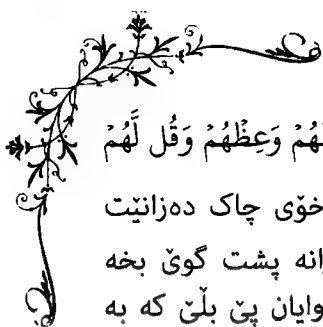 ـهُمۡ وَعِظۡهُمۡ وَقُل لَّهُمۡ
خۆی چاک دەزانێت
انە پشت گوێ بخە
وایان پێ بڵێ کە بە